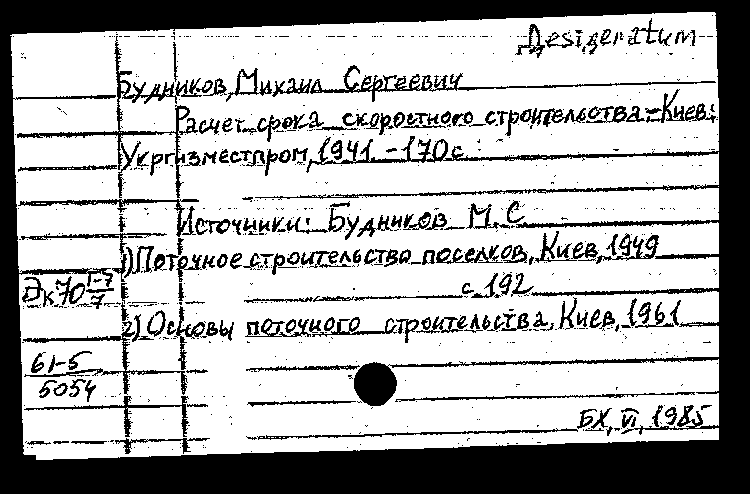 Desideratum
Будников, Михаил Сергеевич
Расчет срока скоростного строительства. - Киев:
Укргизместпром, 1941. - 170 с.
Источники: Будников М. С
1) Поточное строительство поселков, Киев, 1949
с. 192
Эк70 1-7/7
2) Основы поточного строительства, Киев, 1961
61-5
5054
БХ, VI, 1985